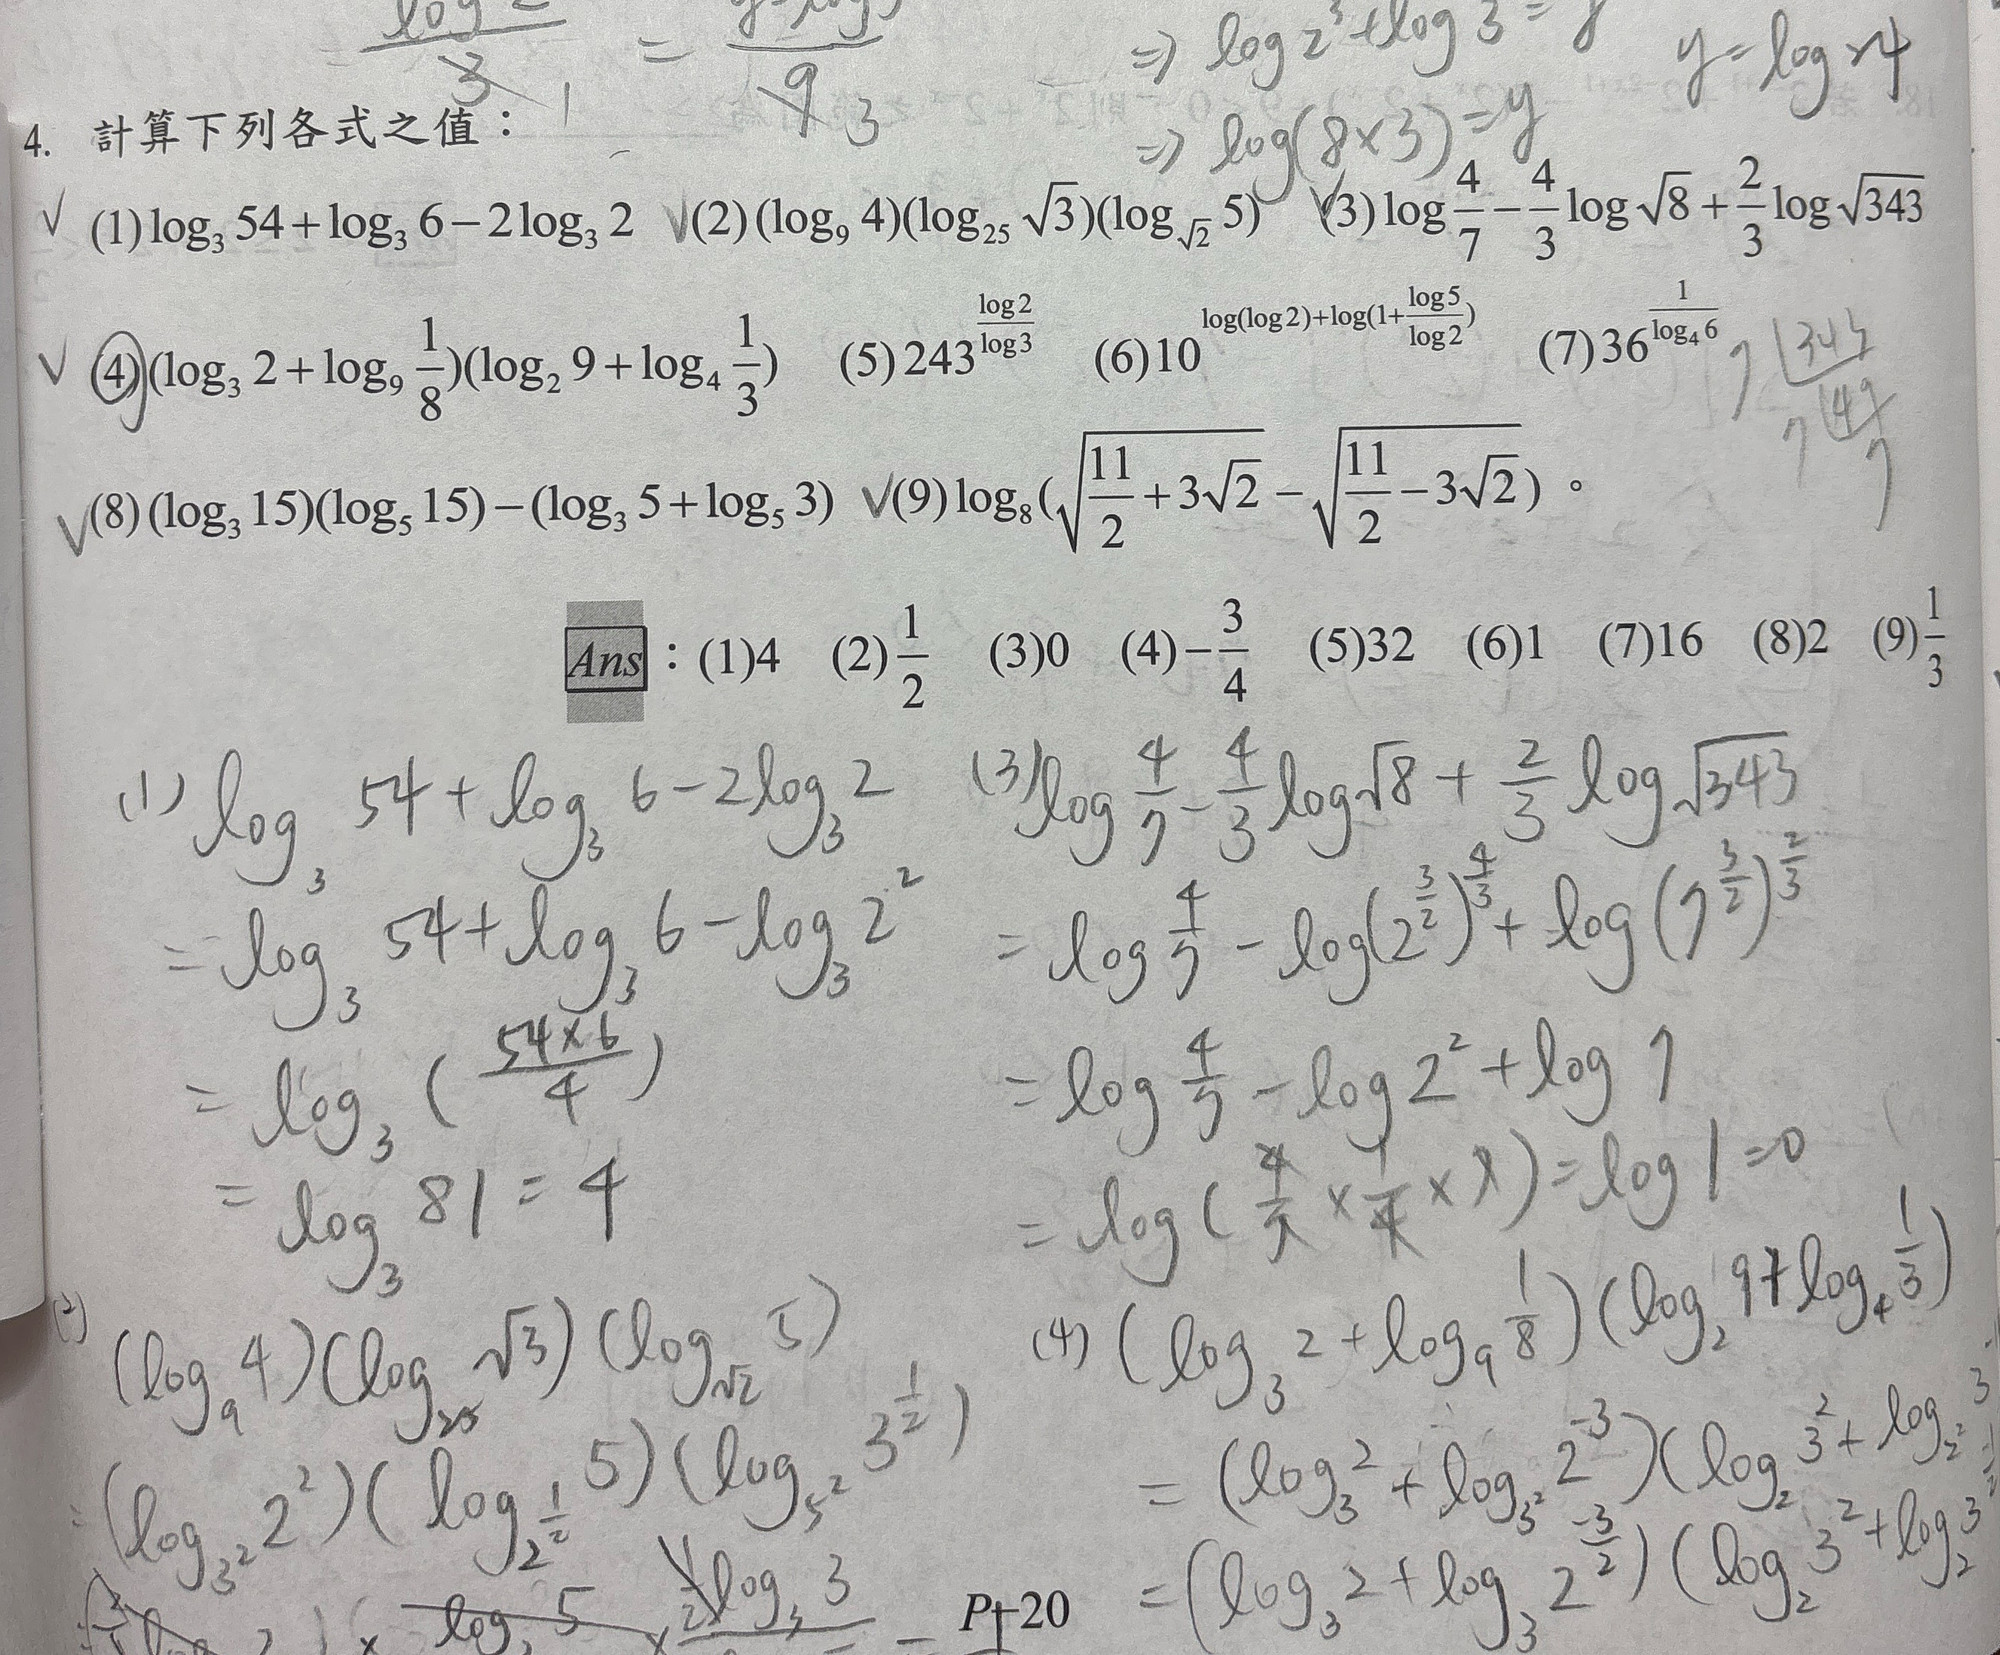 ⇒ log 2³ + log 3 = y
y = log 24
3 1 = 9 3
4. 計算下列各式之值：
⇒ log(8×3) = y
(1) log₃ 54 + log₃ 6 − 2log₃ 2 (2) (log₉ 4)(log₂₅ √3)(log_√2 5) (3) log 4/7 − 4/3 log √8 + 2/3 log √343
(4) (log₃ 2 + log₉ 1/8)(log₂ 9 + log₄ 1/3) (5) 243^(log2/log3) (6) 10^(log(log2)+log(1+log5/log2)) (7) 36^(1/log₄6)
7 343
7 49
7
(8) (log₃ 15)(log₅ 15) − (log₃ 5 + log₅ 3) (9) log₈(√(11/2 + 3√2) − √(11/2 − 3√2))。
Ans：(1)4 (2)1/2 (3)0 (4)−3/4 (5)32 (6)1 (7)16 (8)2 (9)1/3
(1) log₃ 54 + log₃ 6 − 2log₃ 2
= log₃ 54 + log₃ 6 − log₃ 2²
= log₃ (54×6/4)
= log₃ 81 = 4
(2) (log₉ 4)(log₂₅ √3)(log_√2 5)
= (log_3² 2²)(log_2^(1/2) 5)(log_5² 3^(1/2))
(3) log 4/7 − 4/3 log √8 + 2/3 log √343
= log 4/7 − log(2^(3/2))^(4/3) + log(7^(3/2))^(2/3)
= log 4/7 − log 2² + log 7
= log(4/7 × 1/4 × 7) = log 1 = 0
(4) (log₃ 2 + log₉ 1/8)(log₂ 9 + log₄ 1/3)
= (log₃ 2 + log_3² 2^(−3))(log₂ 3² + log_2² 3
= (log₃ 2 + log₃ 2^(−3/2))(log₂ 3² + log₂ 3
P1-20